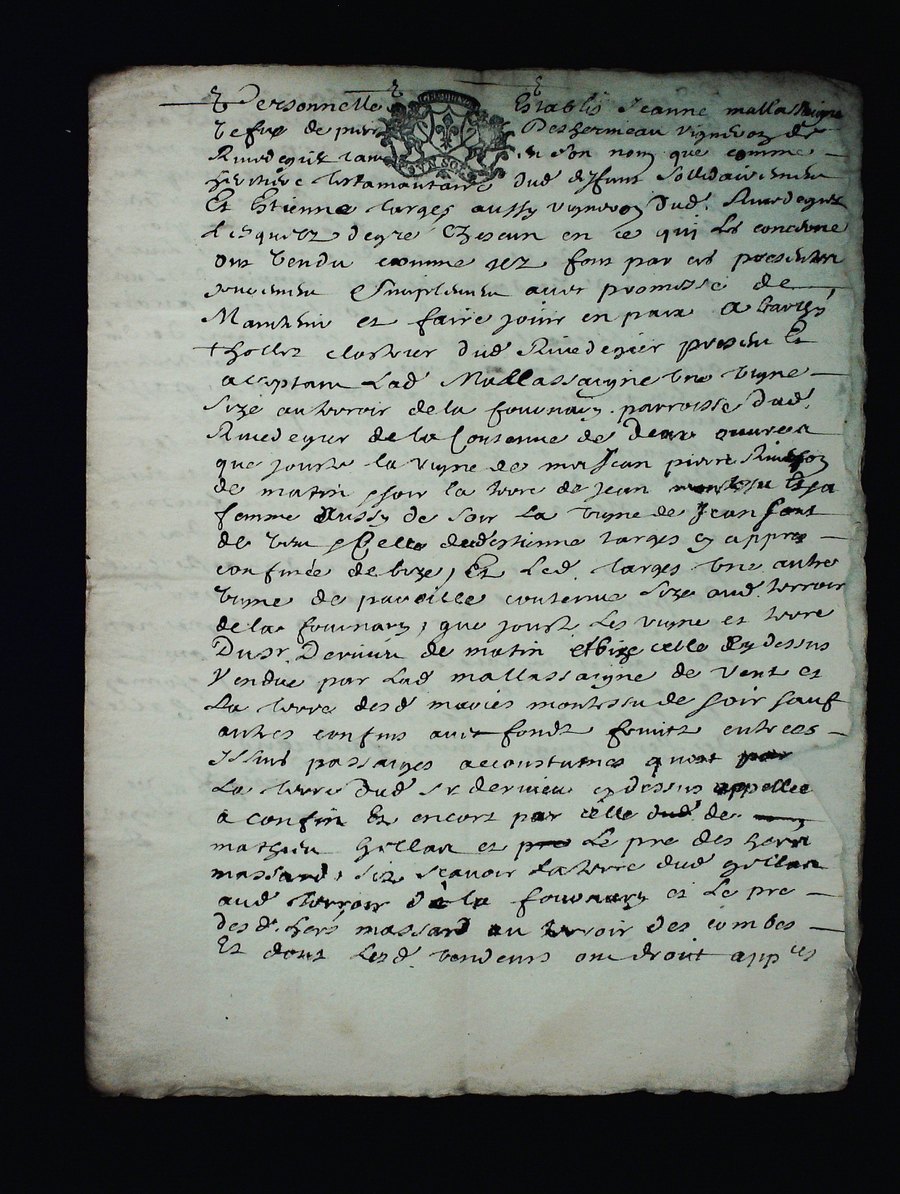 Personnelle Establis Jeanne mallassaigne
Vefue de pierre Deshermeau vigneron de
Rivedegier tant en son nom que comme
heritiere testamantaire dud defunt sollidairement
Et Estienne Larges aussy vigneron dud. Rivedegier
Lesquelz degré Chescun en ce qui Les concerne
ont Vendu comme ilz font par ces presentes
purement & simplement avec promesse de
Maintenir et faire jouir en paix A barthé
thollet clostrier dud Rivedegier present Et
acceptant Lad Mallassaigne Une Vigne
size au terroir de la founary parroisse dud.
Rivedegier de la Contenue de deux ouvrees
que jouste la vigne de mre Jean pierre
de matin & soir la terre de Jean montessu Et sa
femme Aussy de soir La Vigne de Jean font
de Vent & Celle dud estienne Larges cy appres
confinée de bize, Et Led. Larges Une autre
Vigne de pareille contenue size aud. terroir
de la founary, que jouste Les vigne et terre
Dusr. Derieu de matin et bize celle cy dessus
Vendue par Lad mallassaigne de Vent et
La terre desd mariés montessu de soir sauf
autres confins avec fondz fruictz entrees
Issues passaiges accoustumes par
La terre dud sr derieu cy dessus appellee
a confin Et encort par celle dud de
mathieu Gillan et Le pre des hers
massard, size scavoir La terre dud gillan
aud terroir de la founary et Le pre
desd. hers massard au terroir des combes
Et dont Lesd vendeurs ont droit appces